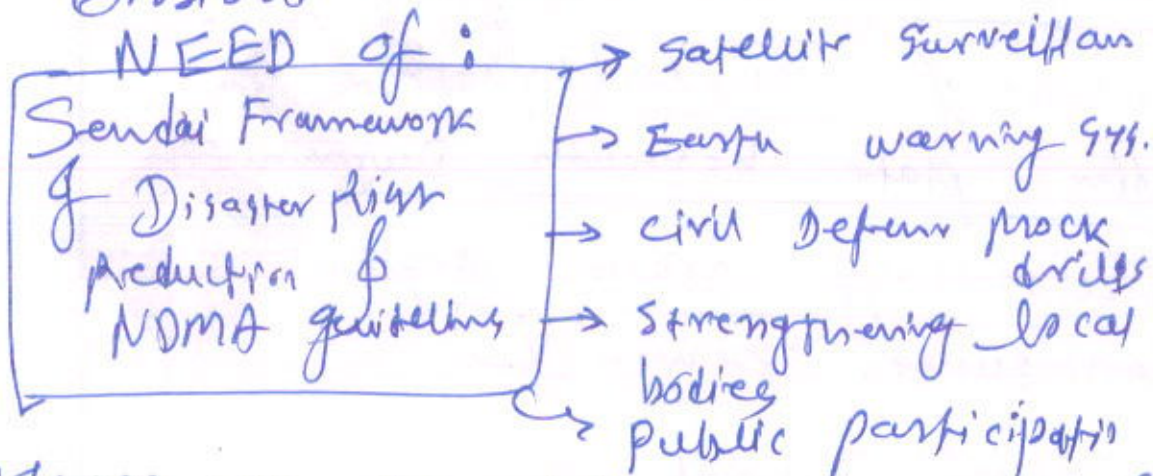 NEED of :
Sendai Framework
of Disaster Risk
Reduction &
NDMA guidelines
→ Satellite Surveillan
→ Early warning sys.
→ Civil Defence Mock
drills
→ Strengthening local
bodies
Public participatio